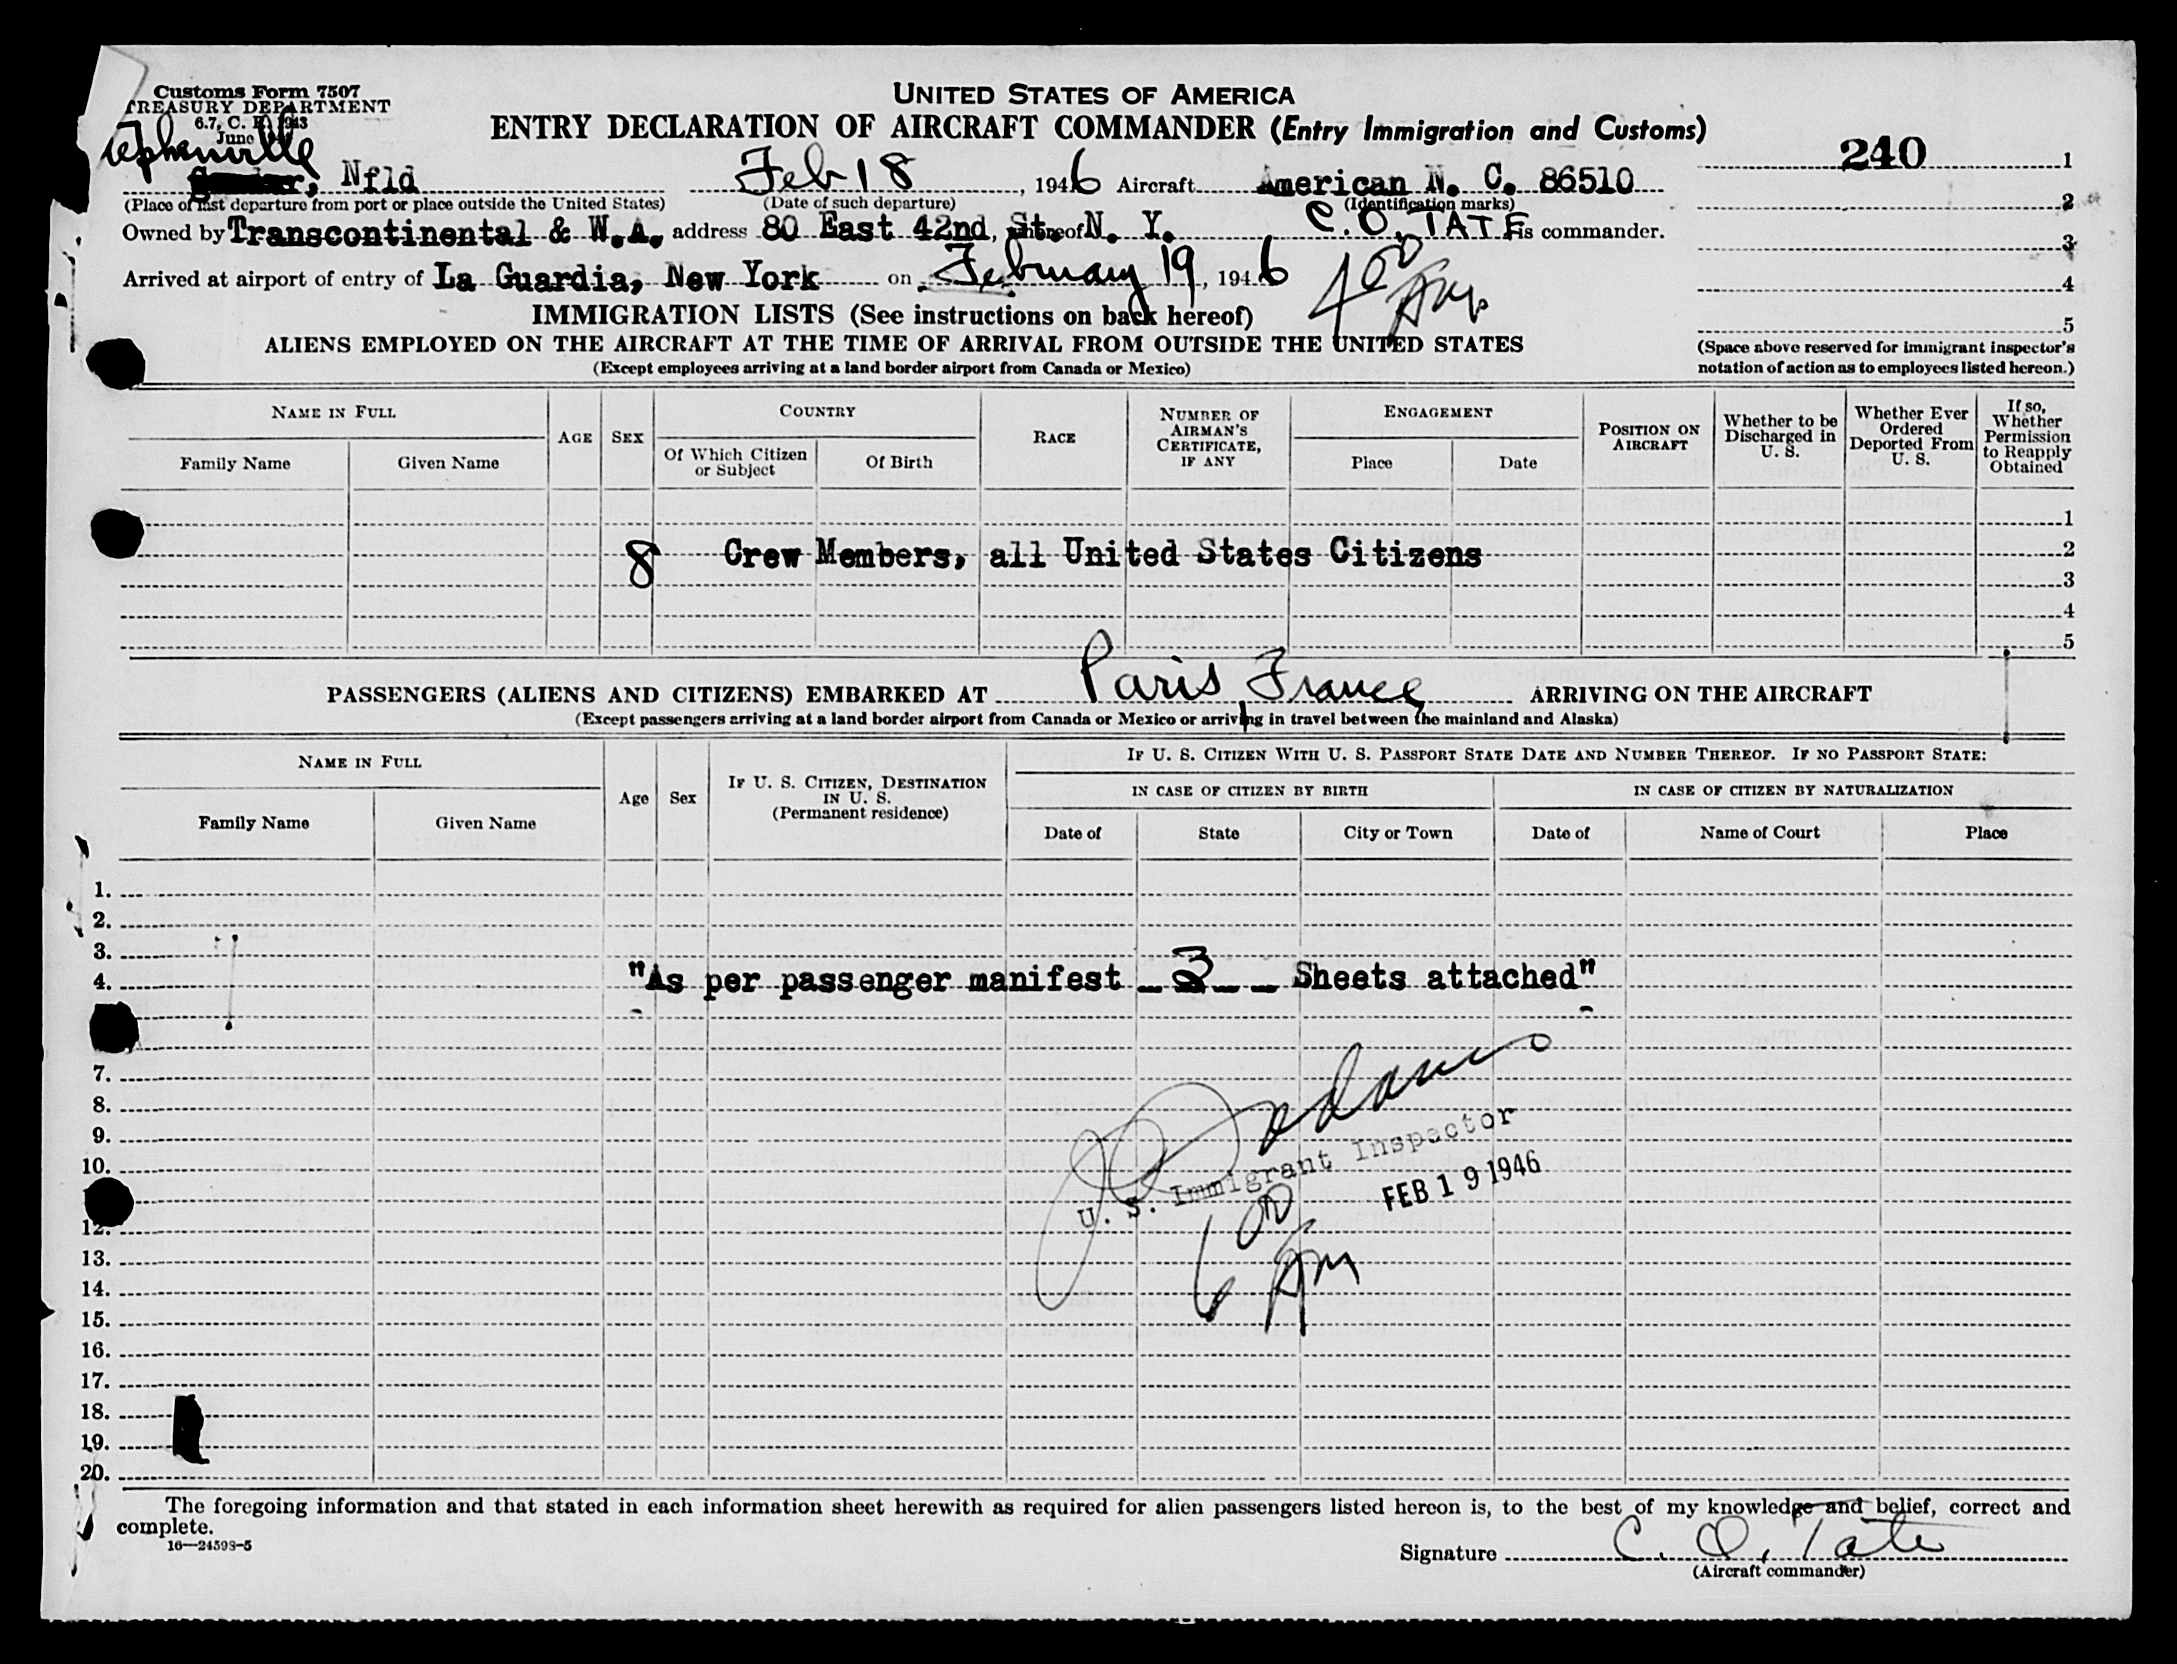 Customs Form 7507
TREASURY DEPARTMENT
6.7, C. R. 1943
June
UNITED STATES OF AMERICA
ENTRY DECLARATION OF AIRCRAFT COMMANDER (Entry Immigration and Customs)
240 1
2
3
4
5
(Space above reserved for immigrant inspector's
notation of action as to employees listed hereon.)
tephenville
Nfld Feb 18, 1946 Aircraft American N. C. 86510
(Place of last departure from port or place outside the United States) (Date of such departure) (Identification marks)
Owned by Transcontinental & W.A. address 80 East 42nd, St. N. Y. C. O. TATE is commander.
Arrived at airport of entry of La Guardia, New York on February 19, 1946 4 00 Am.
IMMIGRATION LISTS (See instructions on back hereof)
ALIENS EMPLOYED ON THE AIRCRAFT AT THE TIME OF ARRIVAL FROM OUTSIDE THE UNITED STATES
(Except employees arriving at a land border airport from Canada or Mexico)
NAME IN FULL
Family Name
Given Name
AGE
SEX
COUNTRY
Of Which Citizen
or Subject
Of Birth
RACE
NUMBER OF
AIRMAN'S
CERTIFICATE,
IF ANY
ENGAGEMENT
Place
Date
POSITION ON
AIRCRAFT
Whether to be
Discharged in
U. S.
Whether Ever
Ordered
Deported From
U. S.
If so,
Whether
Permission
to Reapply
Obtained
1
8 Crew Members, all United States Citizens 2
3
4
5
PASSENGERS (ALIENS AND CITIZENS) EMBARKED AT Paris, France ARRIVING ON THE AIRCRAFT
(Except passengers arriving at a land border airport from Canada or Mexico or arriving in travel between the mainland and Alaska)
NAME IN FULL
Family Name
Given Name
Age
Sex
IF U. S. CITIZEN, DESTINATION
IN U. S.
(Permanent residence)
IF U. S. CITIZEN WITH U. S. PASSPORT STATE DATE AND NUMBER THEREOF. IF NO PASSPORT STATE:
IN CASE OF CITIZEN BY BIRTH
Date of
State
City or Town
IN CASE OF CITIZEN BY NATURALIZATION
Date of
Name of Court
Place
1.
2.
3.
4. "As per passenger manifest 3 Sheets attached"
7.
8.
9.
10.
U. S. Immigrant Inspector
FEB 19 1946
12.
6 00 Am
13.
14.
15.
16.
17.
18.
19.
20.
The foregoing information and that stated in each information sheet herewith as required for alien passengers listed hereon is, to the best of my knowledge and belief, correct and
complete.
16—24598-5
Signature C. O. Tate
(Aircraft commander)